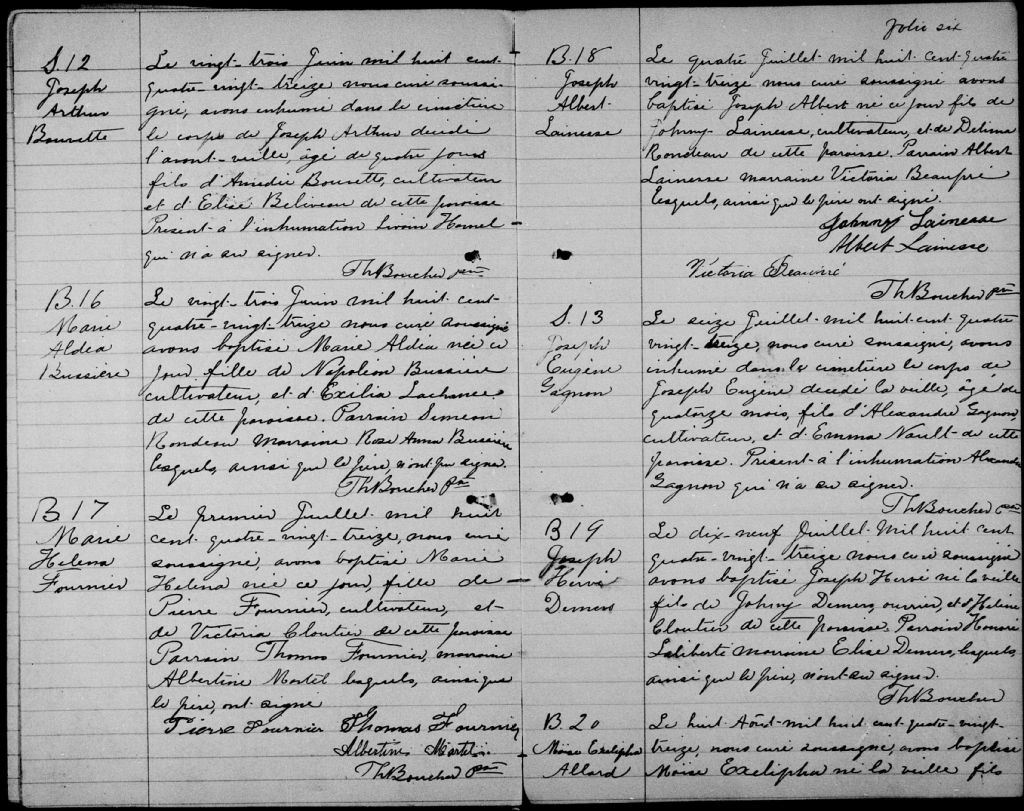 S. 12
Joseph
Arthur
Bourette
Le vingt-trois Juin mil huit cent-
quatre-vingt-treize nous curé soussi-
gné, avons inhumé dans le cimetière
le corps de Joseph Arthur décédé
l'avant-veille, âgé de quatre jours
fils d'Amédée Bourette, cultivateur
et d'Elise Beliveau de cette paroisse
Présent à l'inhumation Hamel
qui n'a su signer.
Th Boucher ptre
B. 16
Marie
Aldéa
Bussière
Le vingt-trois Juin mil huit cent-
quatre-vingt-treize nous curé soussigné
avons baptisé Marie Aldéa née ce
jour fille de Napoléon Bussière
cultivateur, et d'Exilia Lachance
de cette paroisse. Parrain Simeon
Rondeau marraine Rose Anna Bussière
lesquels, ainsi que le père, n'ont pu signer.
Th Boucher ptre
B 17
Marie
Helena
Fournier
Le premier Juillet mil huit
cent quatre-vingt-treize, nous curé
soussigné, avons baptisé Marie
Helena née ce jour, fille de
Pierre Fournier, cultivateur, et
de Victoria Cloutier de cette paroisse
Parrain Thomas Fournier, marraine
Albertine Martel lesquels, ainsi que
le père, ont signé
Pierre Fournier Thomas Fournier
Albertine Martel
Th Boucher ptre
Folio six
B. 18
Joseph
Albert
Lainesse
Le quatre Juillet mil huit cent quatre
vingt-treize nous curé soussigné avons
baptisé Joseph Albert né ce jour fils de
Johnny Lainesse, cultivateur, et de Delima
Rondeau de cette paroisse. Parrain Albert
Lainesse marraine Victoria Beaupré
lesquels, ainsi que le père ont signé.
Johnny Lainesse
Albert Lainesse
Victoria Beaupré
Th Boucher ptre
S. 13
Joseph
Eugène
Gagnon
Le seize Juillet mil huit-cent quatre
vingt-treize, nous curé soussigné, avons
inhumé dans le cimetière le corps de
Joseph Eugène décédé la veille, âgé de
quatorze mois, fils d'Alexandre Gagnon,
cultivateur, et d'Emma Nault de cette
paroisse. Présent à l'inhumation Alexandre
Gagnon qui n'a su signer.
Th Boucher ptre
B 19
Joseph
Hervé
Demers
Le dix-neuf Juillet mil huit cent
quatre-vingt-treize nous curé soussigné
avons baptisé Joseph Hervé né la veille
fils de Johny Demers, ouvrier, et d'Helène
Cloutier de cette paroisse. Parrain Honoré
Laliberté marraine Elise Demers, lesquels,
ainsi que le père, n'ont su signer.
Th Boucher
B. 20
Moïse Exelipha
Allard
Le huit Août mil huit cent quatre-vingt-
treize, nous curé soussigné, avons baptisé
Moïse Exelipha né la veille fils